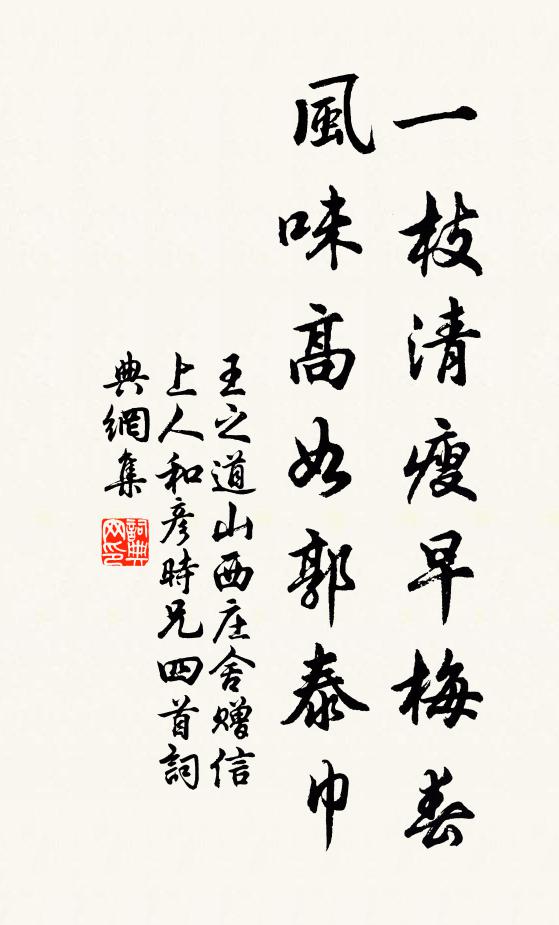 一枝清瘦早梅春
風味高如郭泰巾
王之道山西庄舍贈信
上人和彦時兄四首詞
典網集
詞典
网印